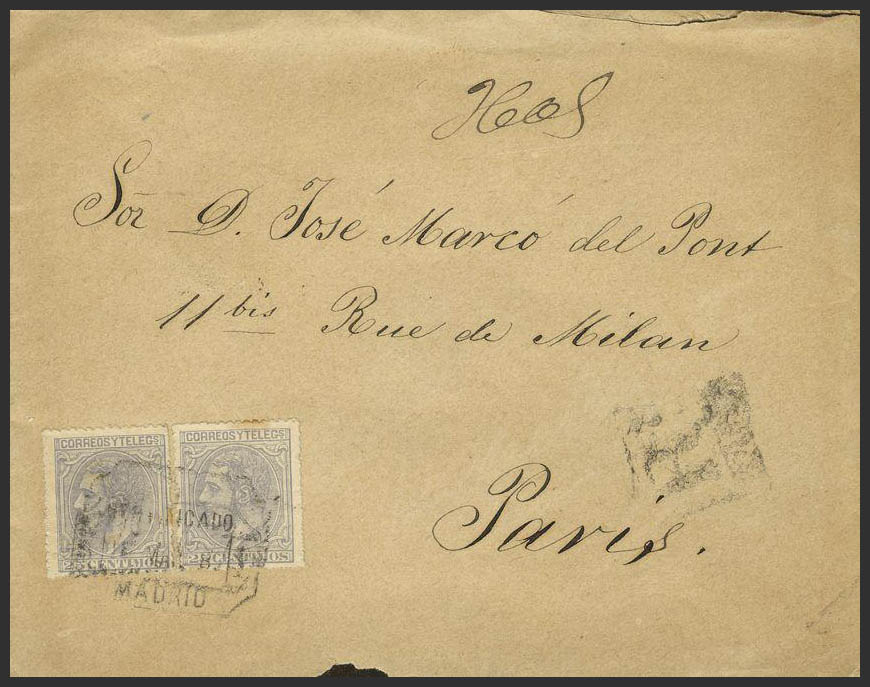 Sor D. José Marcó del Pont
11 bis Rue de Milan
Paris.
CORREOS Y TELEGS
CORREOS Y TELEGS
25 CENTIMOS
25 CENTIMOS
MADRID